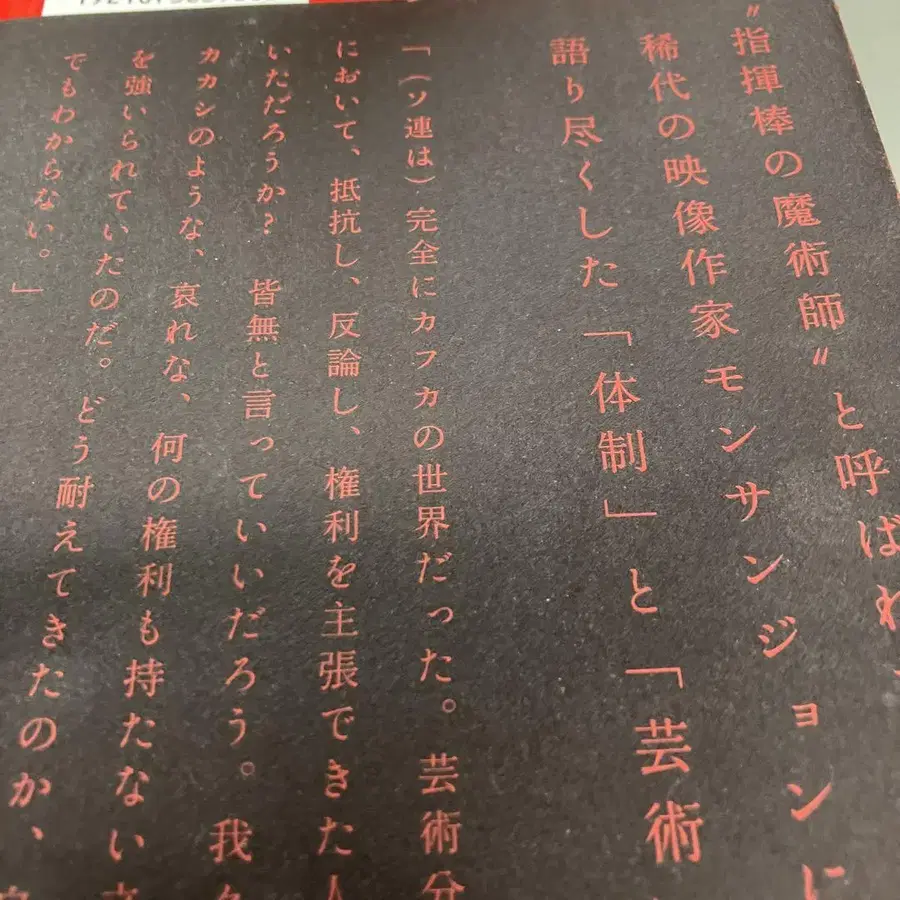 〝指揮棒の魔術師〟と呼ばれ
稀代の映像作家モンサンジョンに
語り尽くした「体制」と「芸術
「(ソ連は)完全にカフカの世界だった。芸術分
において、抵抗し、反論し、権利を主張できた人
いただろうか? 皆無と言っていいだろう。我々
カカシのような、哀れな、何の権利も持たない
を強いられていたのだ。どう耐えてきたのか、
でもわからない。」